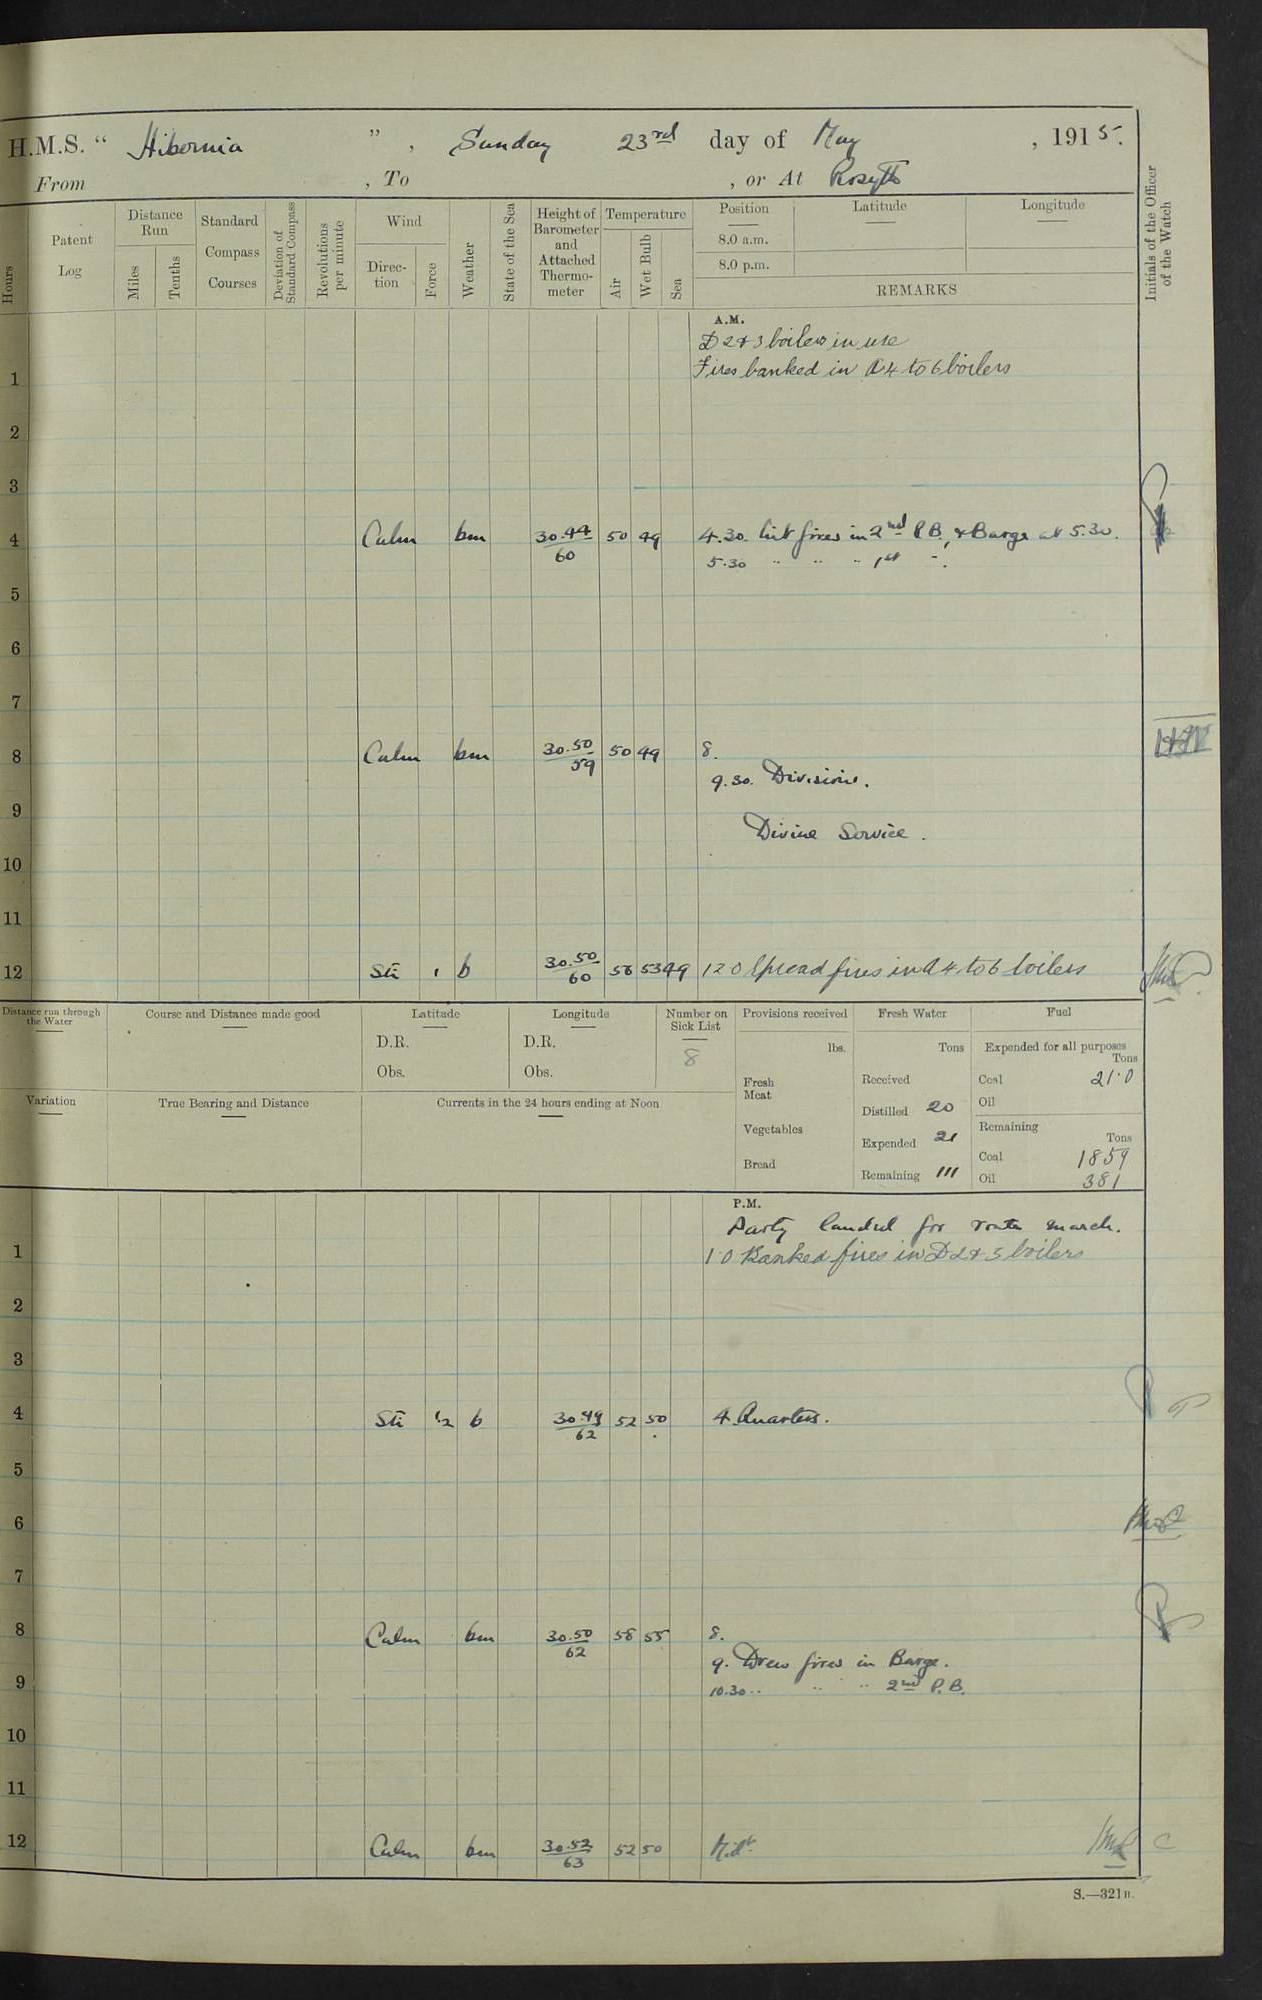 H.M.S. “ Hibernia ”, Sunday 23rd day of May, 1915.
From , To , or At Rosyth
Hours
Patent Log
Distance Run
Miles
Tenths
Standard Compass Courses
Deviation of Standard Compass
Revolutions per minute
Wind
Direction
Force
Weather
State of the Sea
Height of Barometer and Attached Thermometer
Temperature
Air
Wet Bulb
Sea
Position
8.0 a.m.
8.0 p.m.
Latitude
Longitude
REMARKS
Initials of the Officer of the Watch
A.M.
D 2 & 3 boilers in use
1 Fires banked in A 4 to 6 boilers
2
3
4 Calm bm 30.44/60 50 49 4.30. Lit fires in 2nd P.B., & Barge at 5.30.
5.30 " " " 1st ".
5
6
7
8 Calm bm 30.50/59 50 49 8.
9.30. Divisions.
9
Divine Service.
10
11
12 1 b 30.50/60 56 53 49 12 0 Spread fires in A 4 to 6 boilers
Distance run through the Water
Course and Distance made good
Latitude
D.R.
Obs.
Longitude
D.R.
Obs.
Number on Sick List
8
Provisions received
lbs.
Fresh Meat
Vegetables
Bread
Fresh Water
Tons
Received
Distilled 20
Expended 21
Remaining 111
Fuel
Expended for all purposes
Tons
Coal 21·0
Oil
Remaining
Tons
Coal 1859
Oil 381
Variation
True Bearing and Distance
Currents in the 24 hours ending at Noon
P.M.
Party landed for route march.
1 1·0 Banked fires in D 2 & 3 boilers
2
3
4 1/2 b 30.49/62 52 50 4. Quarters.
5
6
7
8 Calm bm 30.50/62 56 55 8.
9. Drew fires in Barge.
9 10.30 " " " 2nd P.B.
10
11
12 Calm bm 30.52/63 52 50 Midt.
S.—321B.